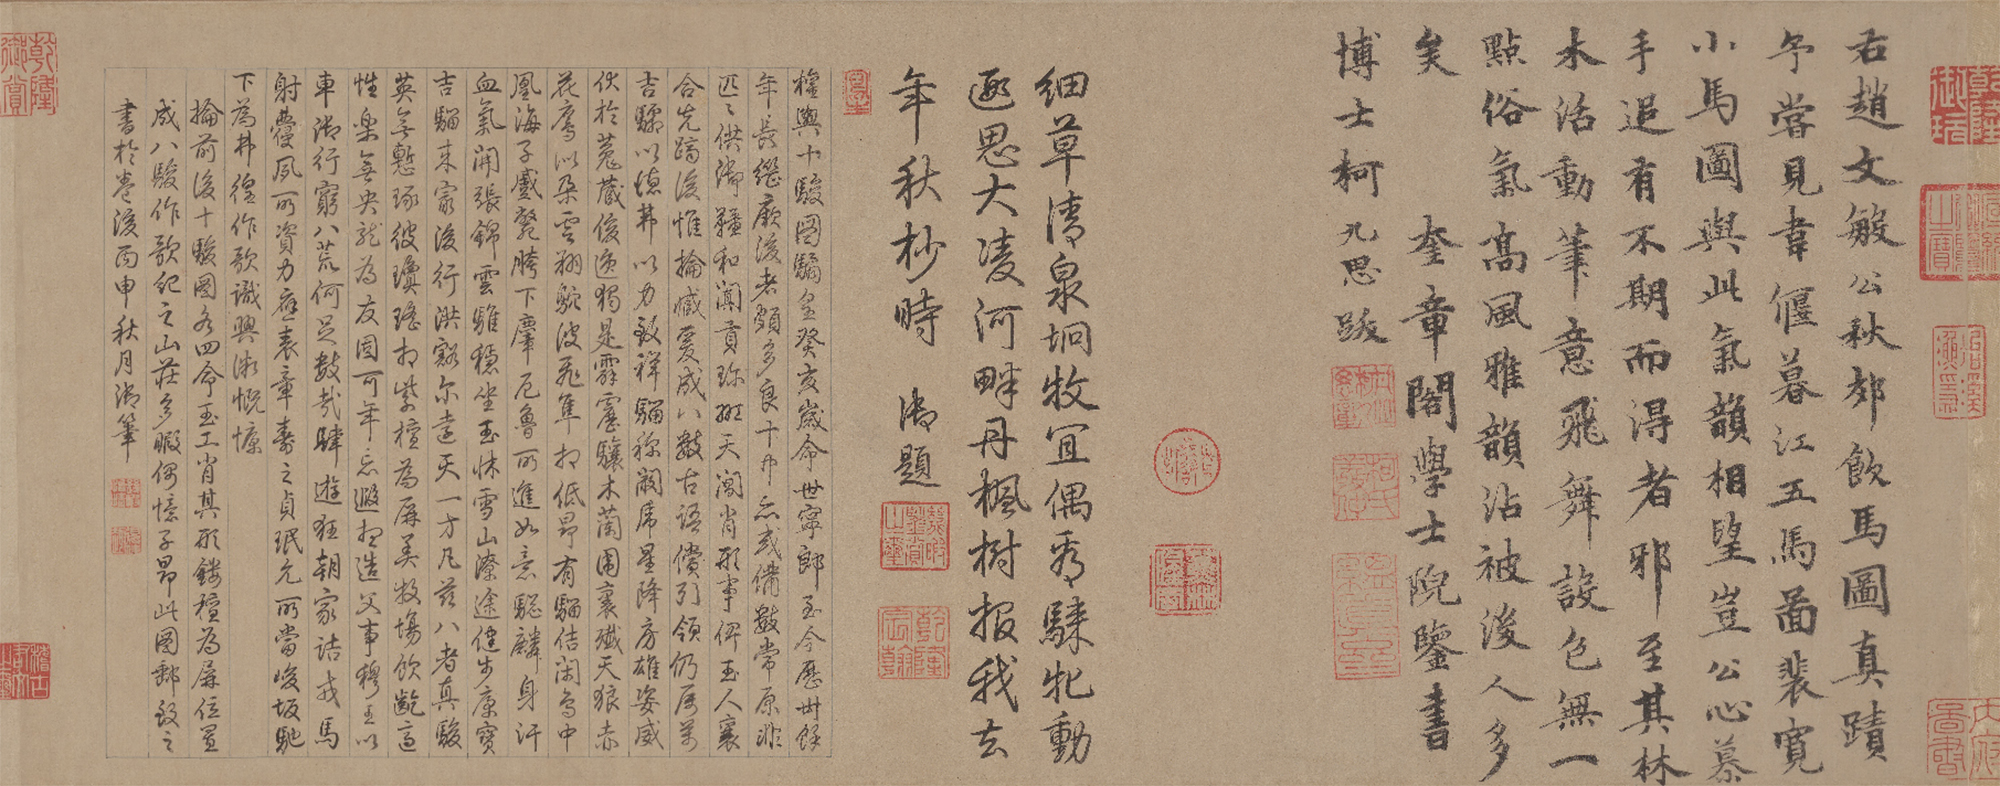 右趙文敏公秋郊飲馬圖真蹟
予嘗見韋偃暮江五馬圖裴寬
小馬圖與此氣韻相望豈公心慕
手追有不期而得者邪至其林
木活動筆意飛舞設色無一
點俗氣高風雅韻沾被後人多
矣 奎章閣學士院鑒書
博士柯九思跋
細草清泉坰牧宜偶看騋牝動
遐思大凌河畔丹楓樹报我去
年秋杪時 御題
權輿十駿圖騸皇癸亥歲命世寧郎至今歷卅餘
年長繼厥後者頗多良十中亦或備數常原非
匹〻供御韁和闐貢珍天閑肖形事俾玉人襄
合先蹄後惟掄臧爰成八數古語償引領仍居萬
吉驦以德茀以力敘祥騮称闞虎星降房雄姿威
伏於菟藏俊逸獨是霹靂驤木蘭圍裏殲天狼赤
花鷹以朵雲翔馳波飛隼相低昂有騮佶閑鳥中
凰海子戲胯下麞厄魯所進如意驄麟身汗
血氣開張錦雲騅穩坐玉牀雪山深途健步康寶
吉騮來家後行洪豁尔遠天一方凡茲八者真駿
英慙琢彼瓊瑤相紫檀為屏美牧場飲齕適
性樂無央龍為友固可年忘遐想造父事穆王以
車御行窮八荒何足數哉肆遊狂朝家詰戎馬
射夙所資力應表章壽之貞珉允所當峻坂馳
下為弗徨作歌識興漸慨慷
掄前後十駿圖各四命玉工肖其形鏤檀為屏位置
成八駿作歌紀之山莊多暇偶憶子昂此圖郵致之
書於卷後丙申秋月御筆